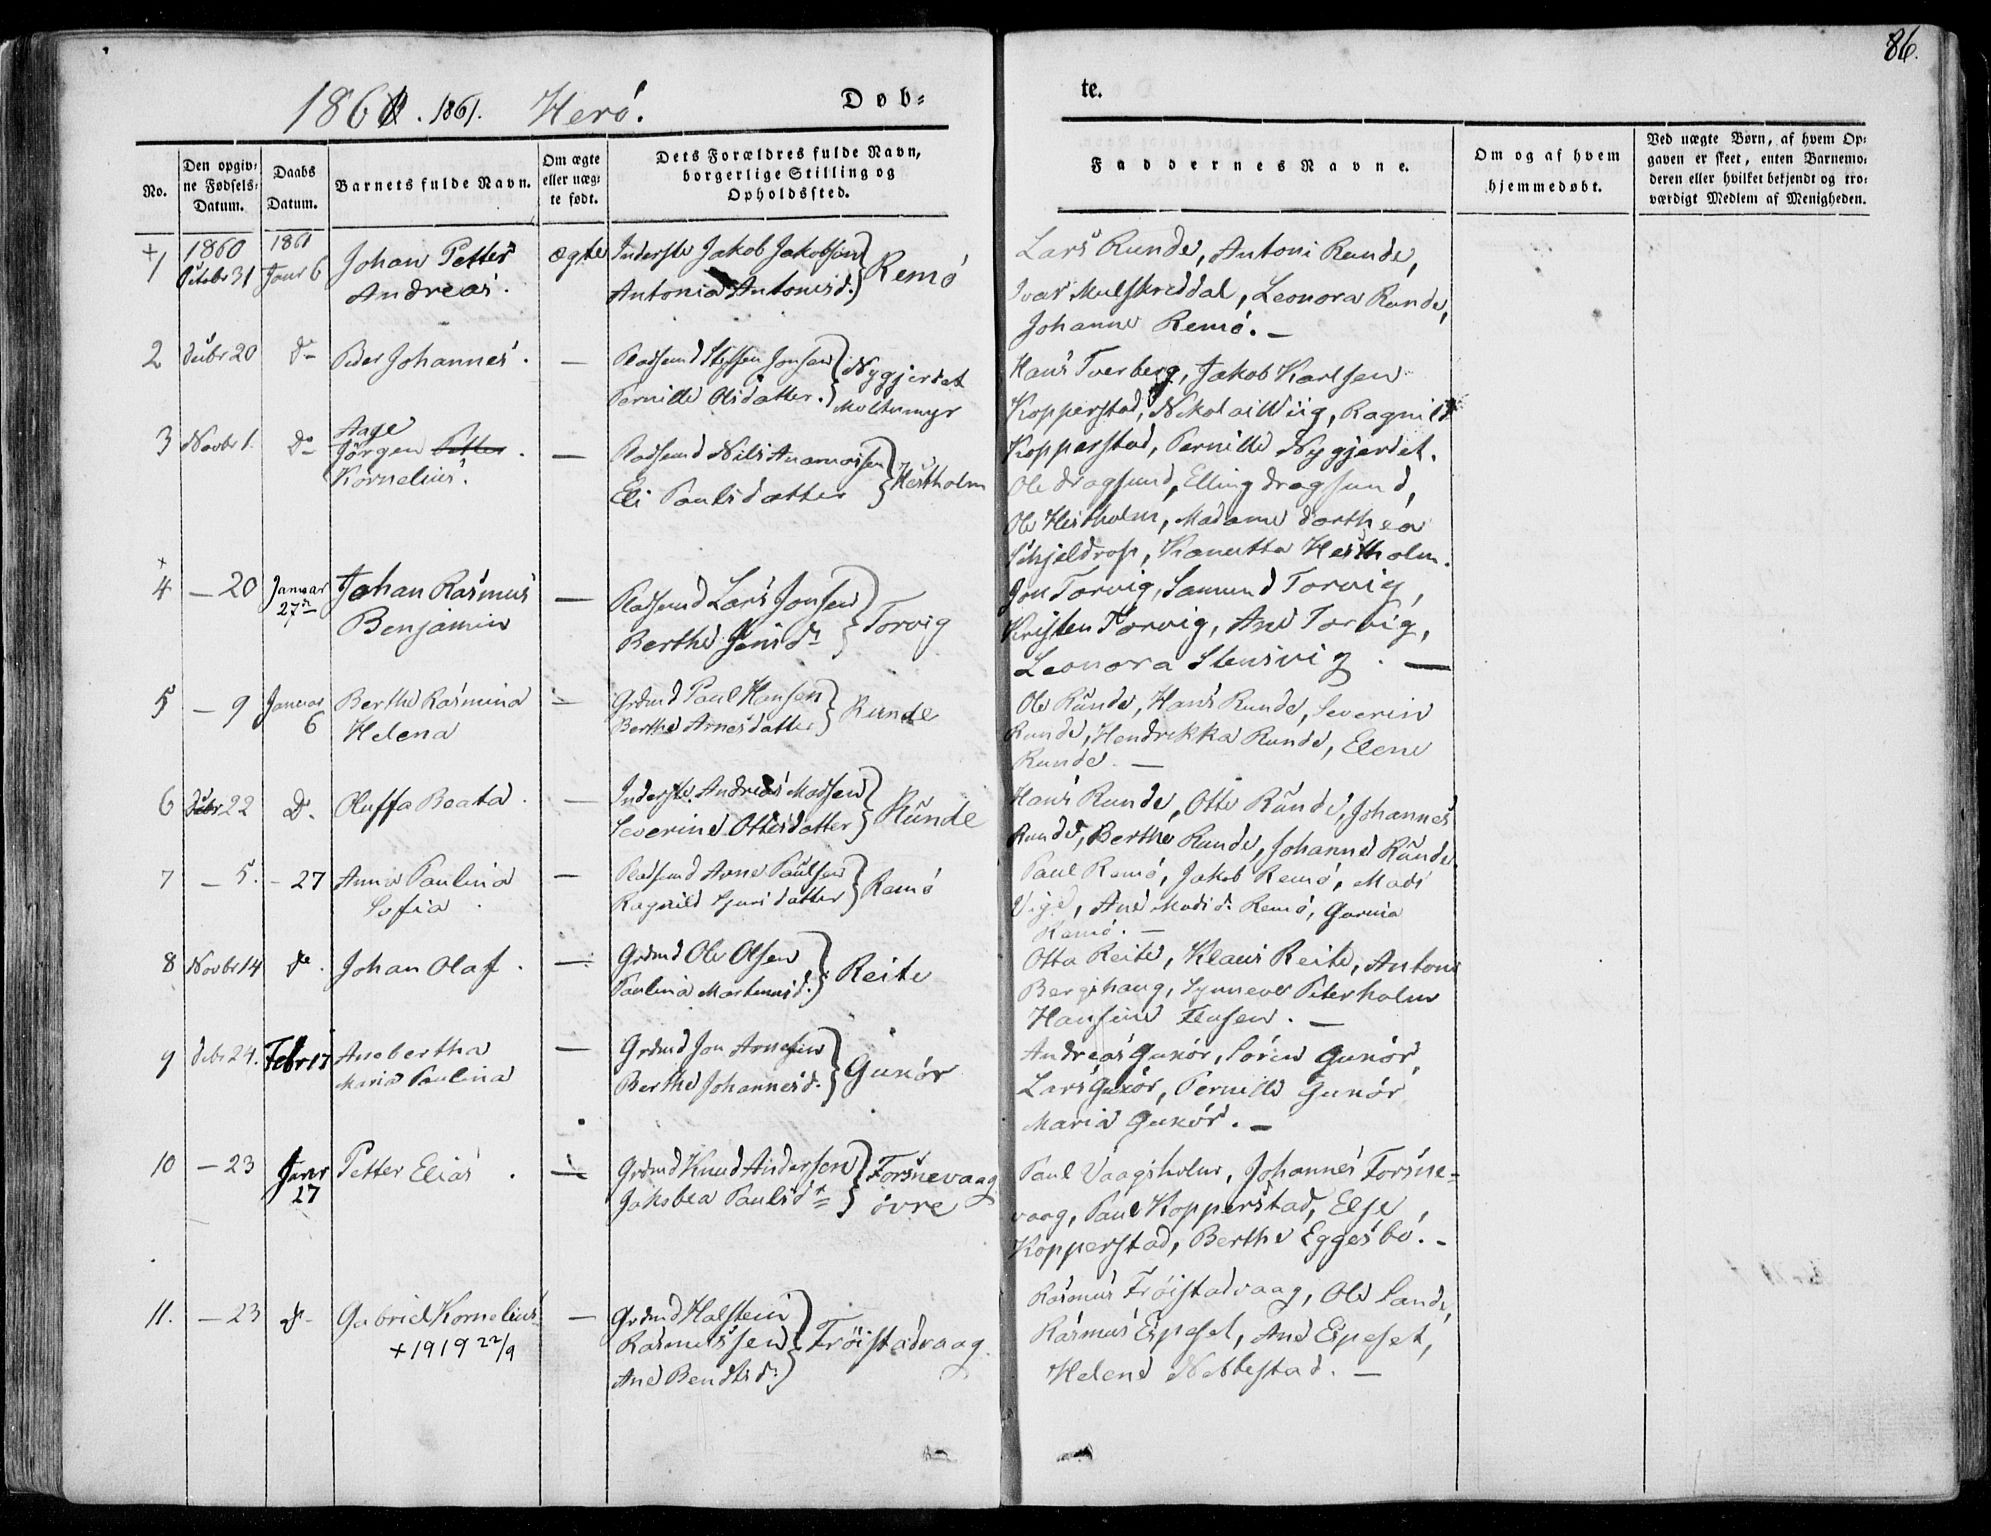 86.
1860. 1861. Herö. Døb-
te.
No.
Den opgiv-
ne Fødsels-
Datum.
Daabs
Datum.
Barnets fulde Navn.
Om ægte
eller uæg-
te født.
Dets Forældres fulde Navn,
borgerlige Stilling og
Opholdssted.
Faddernes Navne.
Om og af hvem
hjemmedøbt.
Ved uægte Børn, af hvem Op-
gaven er skeet, enten Barnemo-
deren eller hvilket bekjendt og tro-
værdigt Medlem af Menigheden.
+
1 1860 Octobr 31 1861 Janr 6 Johan Petter ægte Inderste Jakob Jakobsen } Remö
Andreas. Antonia Antonisd.
Lars Runde, Antoni Runde,
Ivar Mulskreddal, Leonora Runde,
Johanne Remö. —
2 Decbr 20 Do Peder Johannes. — Pladsmd Steffen Jonsen } Nygjerdet
Pernille Olsdatter. Moltumyr
Hans Tverberg, Jakob Karlsen
Kopperstad, Nikolai Wiig, Ragnild
Kopperstad, Pernille Nygjerdet.
3 Novbr 1. Do Aage
Jörgen Petter. — Pladsmd Nils Anamosen } Hestholm
Kornelius. Eli Paulsdatter
Ole Dragsund, Elling Dragsund,
Ole Hestholm, Madame Dorthea
Schjeldrop, Kanutta Hestholm.
+
4 — 20 Januar 27de Johan Rasmus — Pladsmd Lars Jonsen } Torvig
Benjamin Berthe Jonsdr
Jon Torvig, Samund Torvig,
Kristen Torvig, Ane Torvig,
Leonora Stensvig. —
5 — 9 Januar 6 Berthe Rasmina — Grdmd Paul Hansen } Runde
Helena Berthe Arnesdatter
Ole Runde, Hans Runde, Severin
Runde, Hendrikka Runde, Elene
Runde. —
6 Decbr 22 Do. Oluffa Beata. — Inderste Andreas Madsen } Runde
Severine Ottesdatter
Hans Runde, Otte Runde, Johannes
Runde, Berthe Runde, Johanne Runde
7 — 5. - 27 Anna Paulina — Pladsmd Arne Paulsen } Remö
Sofia. Ragnild Sjursdatter
Paul Remö, Jakob Remö, Mads
Vige, Ane Madsd. Remö, Gurina
Remö. —
8 Novbr 14 do. Johan Olaf. — Grdmd Ole Olsen } Reite
Paulina Martinusd.
Otte Reite, Klaus Reite, Antoni
Bergshaug, Synneve Peterholm
Hansine Flusen. —
9 Decbr 24. Febr 17 Anebertha — Grdmd Jon Arnesen } Gurskör
Maria Paulina Berthe Johannesd.
Andreas Gukör, Sören Gukör,
Lars Gukör, Pernille Gukör
Maria Gukör. —
10 — 23 Janr 27 Petter Elias. — Grdmd Knud Andersen } Forsnevaag
Jakobea Paulsdr övre
Paul Vaagsholm, Johannes Forsne-
vaag, Paul Kopperstad, Else
Kopperstad, Berthe Eggesbö. —
11. — 23 do- Gabriel Kornelius — Grdmd Halstein } Fröistadvaag.
+ 1919 22/9 Rasmussen
Ane Bendtsd.
Rasmus Fröistadvaag, Ole Sande,
Rasmus Espeset, Ane Espeset,
Helene Nebbestad. —